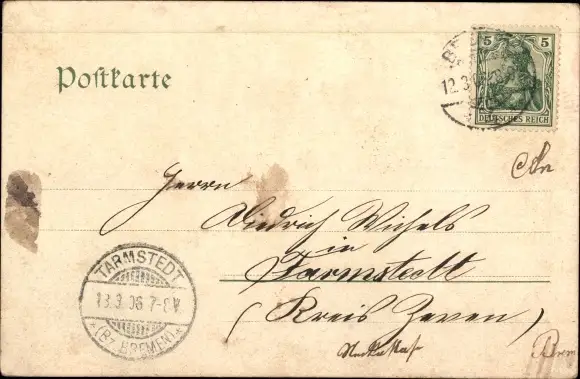 Postkarte
5 5
DEUTSCHES REICH
12.3.06
An
Herrn
Diedrich Wichels
in
Tarmstedt
(Kreis Zeven)
TARMSTEDT
13.3.06 7-8V
*(Bz. BREMEN)*
Brem